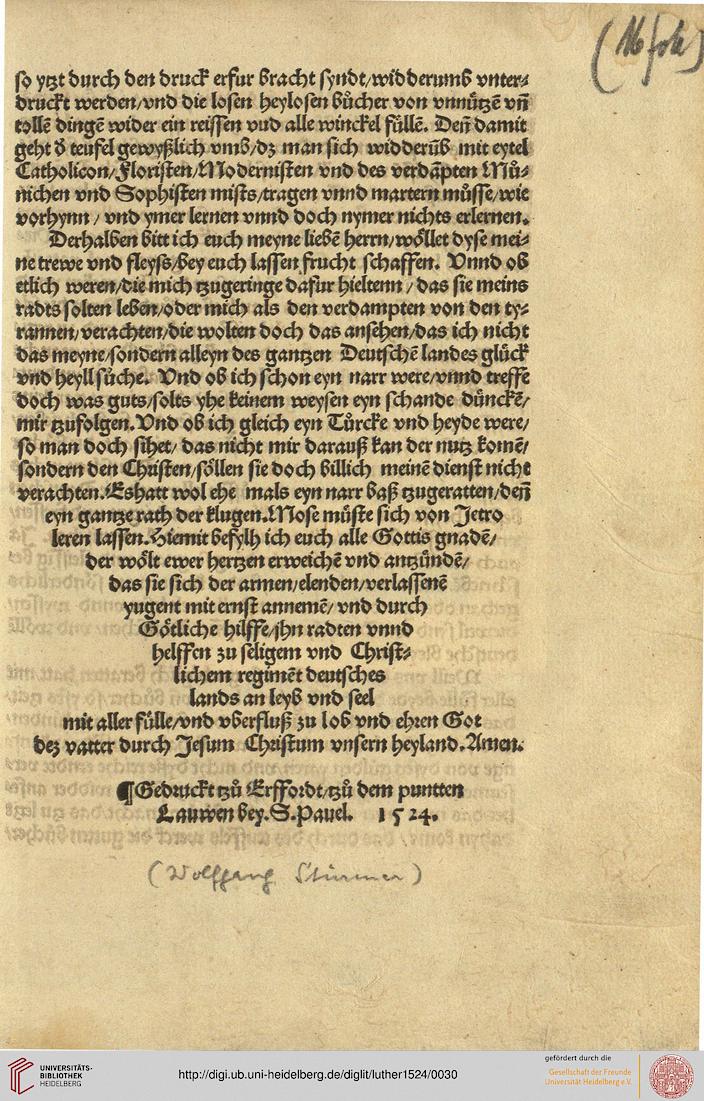 (16 fol.)
so ytzt durch den druck erfur bracht syndt/widderumb vnter⸗
druckt werden/vnd die losen heylosen buͤcher von vnnuͤtzē vñ
tollē dingē wider ein reissen vnd alle winckel fuͤllē. Deñ damit
geht ď teufel gewyßlich vmb/dz man sich widderūb mit eytel
Catholicon/Floristen/Modernisten vnd des verdāpten Muͤ⸗
nichen vnd Sophisten mists/tragen vnnd martern muͤsse/wie
vorhynn/ vnd ymer lernen vnnd doch nymer nichts erlernen.
Derhalben bitt ich euch meyne liebē herrn/woͤllet dyse mei⸗
ne trewe vnd fleyss/bey euch lassen frucht schaffen. Vnnd ob
etlich weren/die mich tzugeringe dafur hieltenn/ das sie meins
radts solten leben/oder mich als den verdampten von den ty⸗
rannen/verachten/die wolten doch das ansehen/das ich nicht
das meyne/sondern alleyn des gantzen Deutschē landes gluͤck
vnd heyll suͤche. Vnd ob ich schon eyn narr were/vnnd treffe
doch was guts/solts yhe keinem weysen eyn schande duͤnckē/
mir tzufolgen. Vnd ob ich gleich eyn Tuͤrcke vnd heyde were/
so man doch sihet/ das nicht mir darauß kan der nutz komē/
sondern den Christen/soͤllen sie doch billich meinē dienst nicht
verachten. Es hatt wol ehe mals eyn narr baß tzugeratten/deñ
eyn gantze rath der klugen. Mose muͤste sich von Jetro
leren lassen. Hiemit befylh ich euch alle Gottis gnadē/
der woͤlt ewer hertzen erweichē vnd antzuͤndē/
das sie sich der armen/elenden/verlassenē
yugent mit ernst annemē/ vnd durch
Goͤtliche hilffe/jhn radten vnnd
helffen zu seligem vnd Christ⸗
lichem regimēt deutsches
lands an leyb vnd seel
mit aller fuͤlle/vnd vberfluß zu lob vnd ehren Got
dez vatter durch Jesum Christum vnsern heyland. Amen.
¶Gedruckt tzuͦ Erffordt/tzuͦ dem puntten
Lauwen bey. S. Pauel. 1524.
(Wolfgang Stürmer)
UNIVERSITÄTS-
BIBLIOTHEK
HEIDELBERG
http://digi.ub.uni-heidelberg.de/diglit/luther1524/0030
gefördert durch die
Gesellschaft der Freunde
Universität Heidelberg e.V.